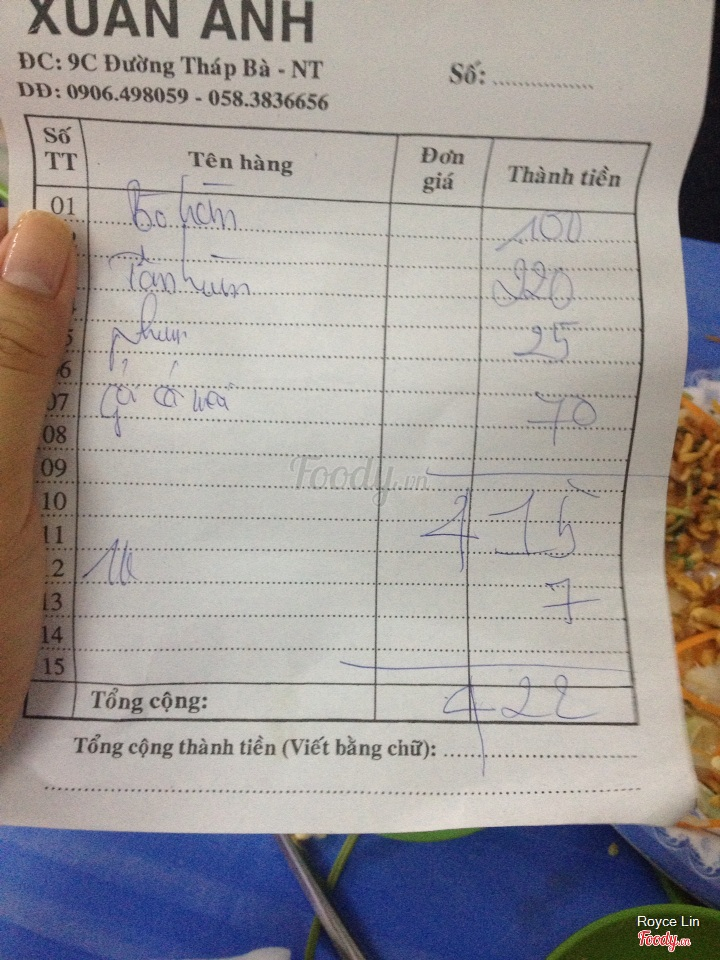 XUÂN ANH
ĐC: 9C Đường Tháp Bà - NT
Số: ................
DĐ: 0906.498059 - 058.3836656
Số TT Tên hàng Đơn giá Thành tiền
01 Bò hầm 100
220
25
6
07 Gỏi cá 70
08
09
10
11 415
12
13 7
14
15
Tổng cộng: 422
Tổng cộng thành tiền (Viết bằng chữ): ................
Foody.vn
Royce Lin
Foody.vn